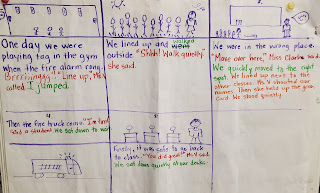 One day we were
playing tag in the gym
when the fire alarm rang.
"Line up", Ms. V
called. I jumped.
We lined up and walked
outside. "Shhh! Walk quietly"
she said.
We were in the wrong place.
"Move over here," Miss Clarke said.
We quickly moved to the right
spot. We lined up next to the
other classes. Ms. V shouted our
names. Then she held up the green
card. We stood quietly.
Then the fire truck came.
said a student. We sat down to wait.
Finally, it was safe to go back
to class. "You did great!" Ms. V said.
We sat down quietly at our desks.